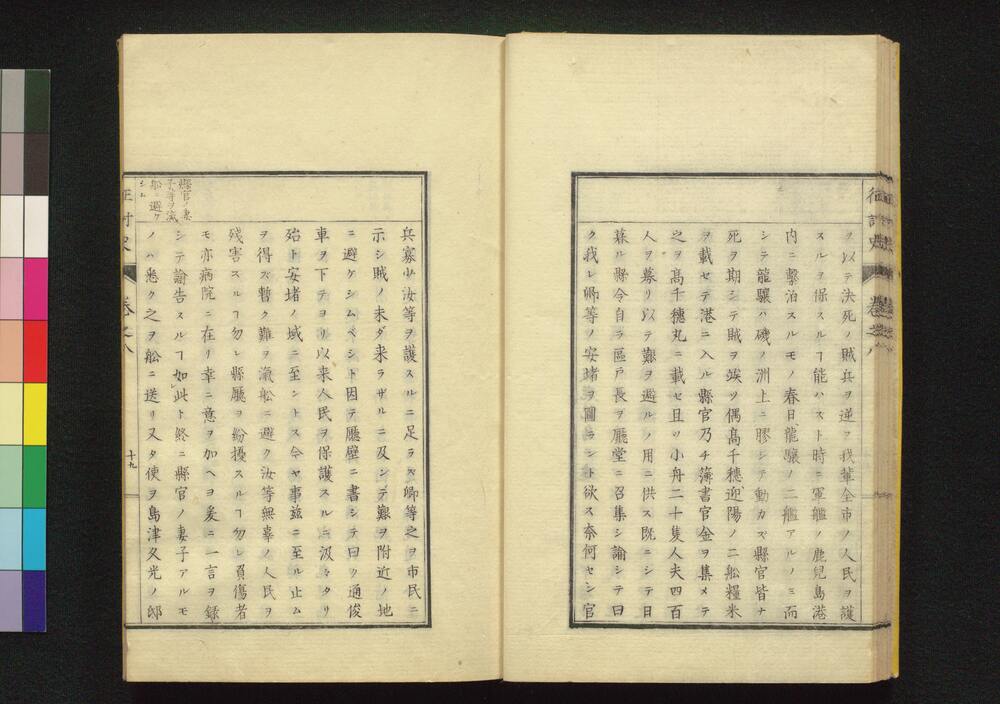 征討史 卷之八
ヲ以テ決死ノ賊兵ヲ逆フ我輩全市ノ人民ヲ護
スルヲ保スルヿ能ハスト時ニ軍艦ノ鹿兒島港
内ニ繫泊スルモノ春日龍驤ノ二艦アルノミ而
シテ龍驤ハ磯ノ洲上ニ膠シテ動カズ縣官皆ナ
死ヲ期シテ賊ヲ竢ツ偶高千穗迎陽ノ二船糧米
ヲ載セテ港ニ入ル縣官乃チ簿書官金ヲ集メテ
之ヲ高千穗丸ニ載セ且ツ小舟二十隻人夫四百
人ヲ募リ以テ難ヲ避ルノ用ニ供ス既ニシテ日
暮ル縣令自ラ區戶長ヲ廳堂ニ召集シ諭シテ曰
ク我レ卿等ノ安堵ヲ圖ラント欲ス奈何セン官
兵寡少汝等ヲ護スルニ足ラズ卿等之ヲ市民ニ
示シ賊ノ未ダ来ラザルニ及ンデ難ヲ附近ノ地
ニ避ケシムベシト因テ廳壁ニ書シテ曰ク通俊
車ヲ下テヨリ以来人民ヲ保護スルニ汲々タリ
殆ト安堵ノ域ニ至ントス今ヤ事玆ニ至ル止ム
ヲ得ズ暫ク難ヲ滊船ニ避ク汝等無辜ノ人民ヲ
残害スルヿ勿レ縣廳ヲ紛擾スルヿ勿レ負傷者
モ亦病院ニ在リ幸ニ意ヲ加ヘヨ爰ニ一言ヲ錄
シテ諭告スルヿ如此ト終ニ縣官ノ妻子アルモ
ノハ悉ク之ヲ船ニ送リ又タ使ヲ島津久光ノ邸
縣官ノ妻
子等ヲ滊
船ニ避ケ
シム
征討史 卷之八 十九